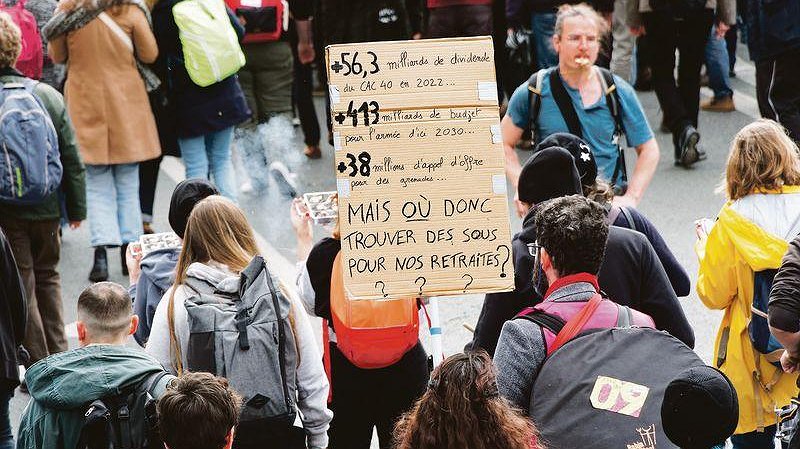 +56,3 milliards de dividende
du CAC 40 en 2022...
+413 milliards de budget
pour l'armée d'ici 2030...
+38 millions d'appel d'offre
pour des grenades...
MAIS OÙ DONC
TROUVER DES SOUS
POUR NOS RETRAITES?
? ? ? ?